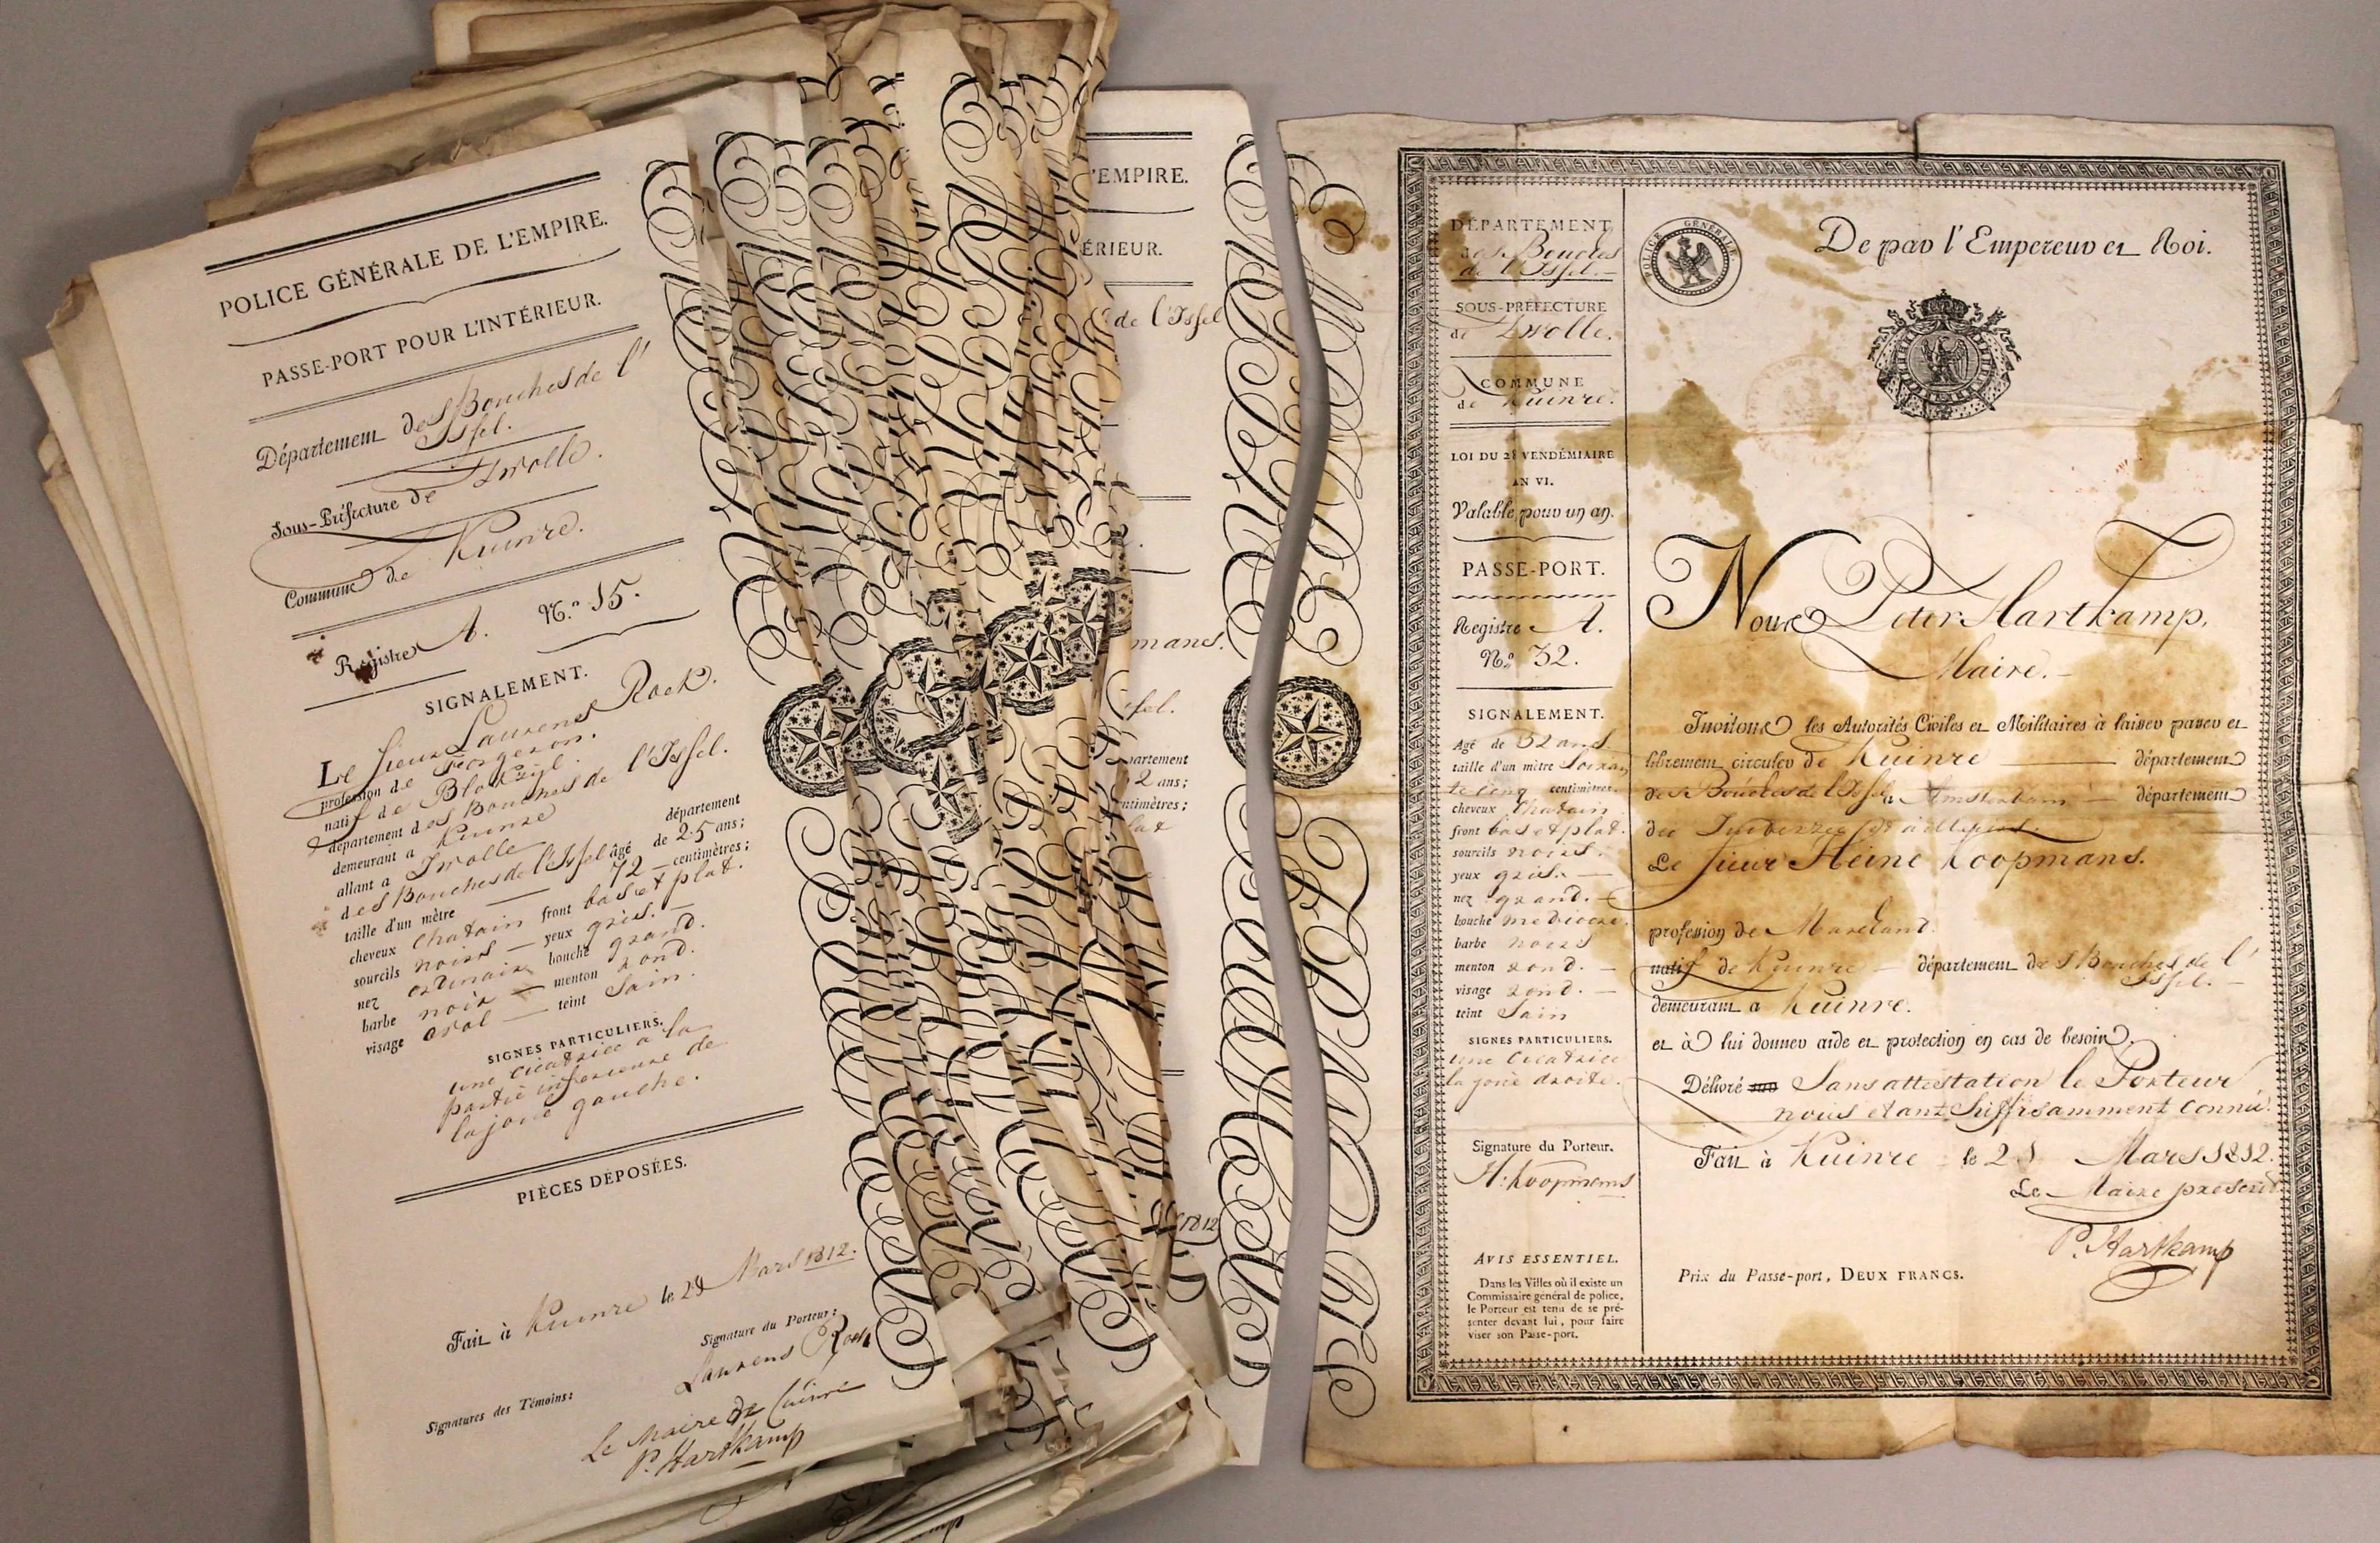 POLICE GÉNÉRALE DE L'EMPIRE.
PASSE-PORT POUR L'INTÉRIEUR.
Département des Bouches de l'
Issel.
Sous-Préfecture de Zwolle.
Commune de Kuinre.
Registre A. N.º 15.
SIGNALEMENT.
Le sieur Laurens Roek.
profession de Forgeron.
natif de Blokzijl.
département des Bouches de l'Issel.
demeurant a Kuinre
allant a Zwolle département
des Bouches de l'Issel âgé de 25 ans;
taille d'un mètre 72 centimètres;
cheveux chatain front bas et plat.
sourcils noirs yeux gris.
nez ordinaire bouche grand.
barbe noir menton rond.
visage oval teint Sain.
SIGNES PARTICULIERS.
une cicatrice a la
partie inferieure de
la joue gauche.
PIÈCES DÉPOSÉES.
Fait à Kuinre le Mars 1812.
Signature du Porteur:
Laurens Roek
Signatures des Témoins:
Le Maire de Cuinre
P. Hartkamp
'EMPIRE.
ÉRIEUR.
de l'Issel
mans.
ssel.
partement
2 ans;
ntimètres;
lat
1812
DÉPARTEMENT
des Bouches
de l'Issel.
SOUS-PRÉFECTURE
de Zwolle.
COMMUNE
de Kuinre.
LOI DU 28 VENDÉMIAIRE
AN VI.
Valable pour un an.
PASSE-PORT.
Registre A.
N.º 32.
SIGNALEMENT.
Agé de 32 ans
taille d'un mètre Soixan
te cinq centimètres.
cheveux Chatain
front bas et plat.
sourcils noirs.
yeux gris.
nez grand.
bouche mediocre.
barbe noirs
menton rond.
visage rond.
teint Sain
SIGNES PARTICULIERS.
une cicatrice
la joue droite.
Signature du Porteur.
H: Koopmans
AVIS ESSENTIEL.
Dans les Villes où il existe un
Commissaire général de police,
le Porteur est tenu de se pré-
senter devant lui, pour faire
viser son Passe-port.
POLICE GÉNÉRALE
De par l'Empereur et Roi.
Nous Peter Hartkamp,
Maire.
Invitons les Autorités Civiles et Militaires à laisser passer et
librement circuler de Kuinre département
des Bouches de l'Issel a Amsterdam département
du Zuiderzee et ailleurs.
Le sieur Heine Koopmans.
profession de
natif de Kuinre département des Bouches de l'
Issel.
demeurant a Kuinre.
et à lui donner aide et protection en cas de besoin.
Délivré sur Sans attestation le Porteur
nous etant Suffisamment Connu.
Fait à Kuinre le 21 Mars 1812.
Le Maire présent
P. Hartkamp
Prix du Passe-port, DEUX FRANCS.